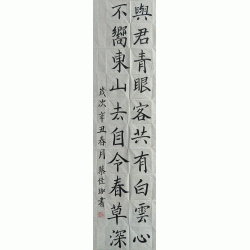 與君青眼客共有白雲心
不嚮東山去自令春草深
歲次辛丑春月蔡佳珈書